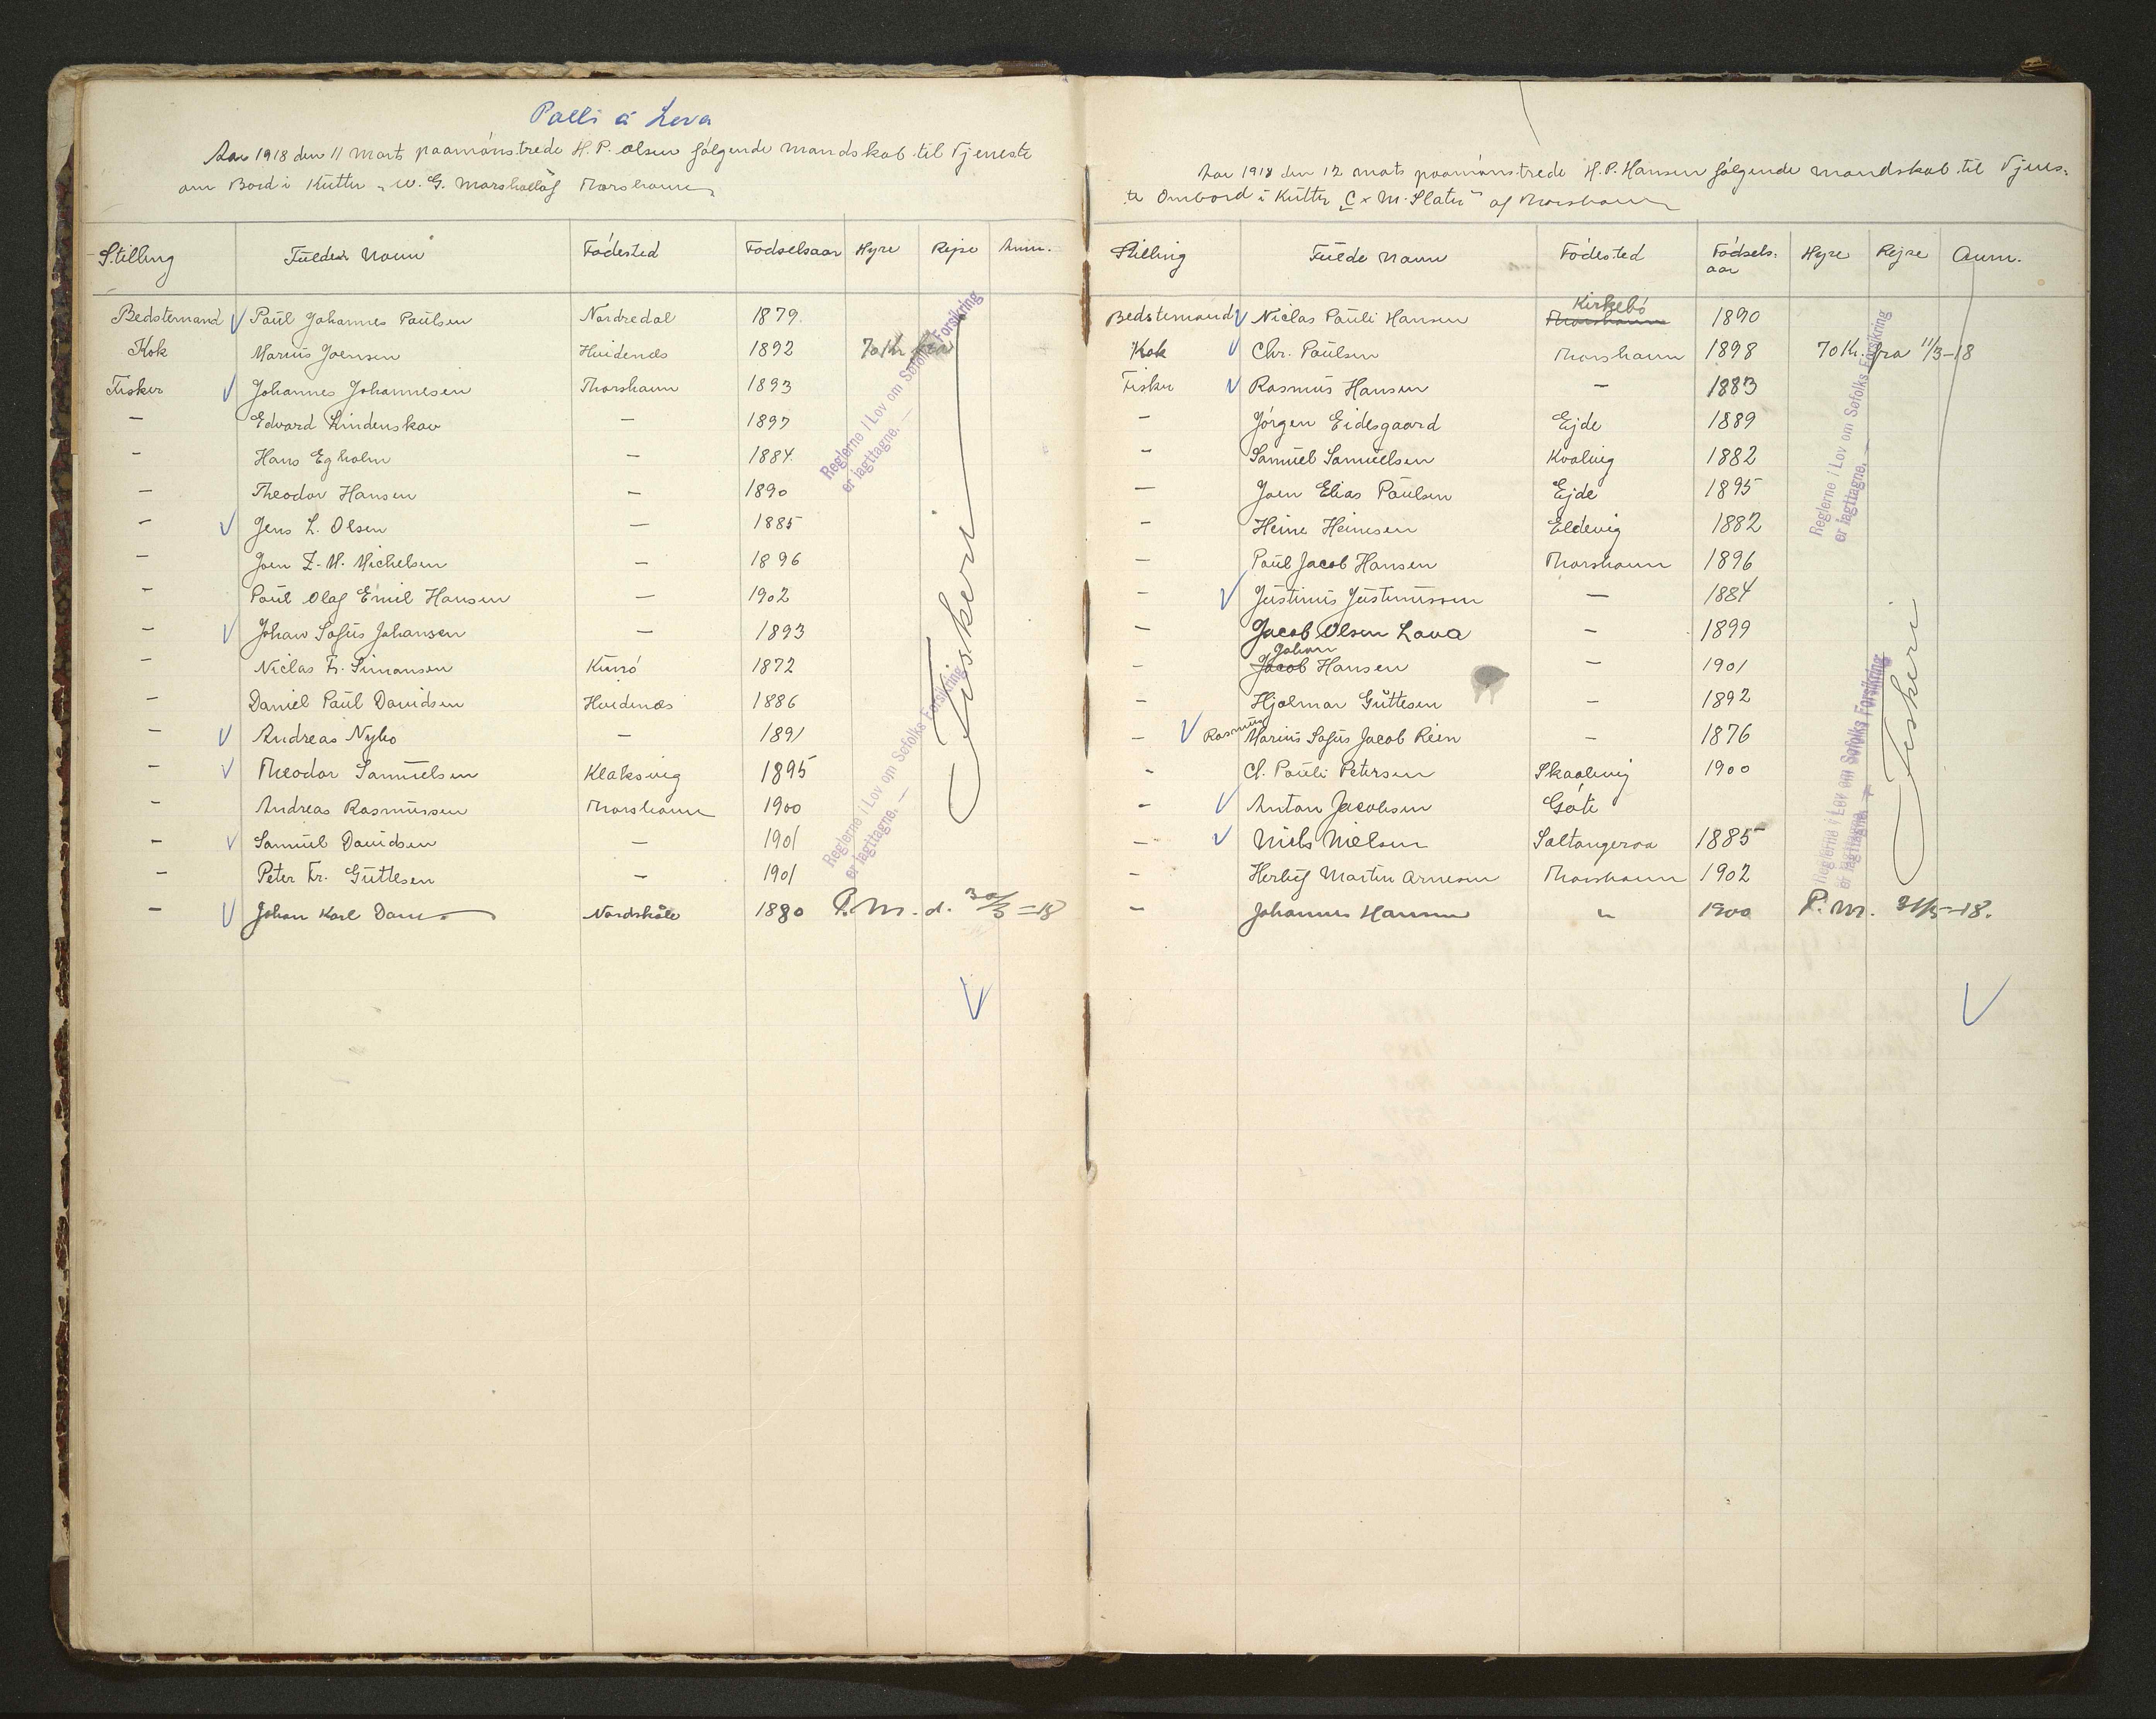 Palli á Lava
Aar 1918 den 11 Marts paamönstrede H. P. Olsen fölgende mandskab til Tjeneste
om Bord i Kutter „W. G. Marshall" af Thorshavn
Stilling Fulde Navn Födested Födselsaar Hyre Rejse Anm.
Bedstemand Paul Johannes Paulsen Nordredal 1879
Kok Marius Joensen Hvidenæs 1892 70 Kr. fra
Fisker Johannes Johannesen Thorshavn 1893
— Edvard Lindenskov — 1897
— Hans Egholm — 1884
— Theodor Hansen — 1890
— Jens L. Olsen — 1885
— Joen Z. M. Michelsen — 1896
— Paul Olaf Emil Hansen — 1902
— Johan Sofus Johansen — 1893
— Niclas Fr. Simonsen Kunö 1872
— Daniel Paul Davidsen Hvidenæs 1886
— Andreas Nybo — 1891
— Theodor Samuelsen Klaksvig 1895
— Andreas Rasmussen Thorshavn 1900
— Samuel Davidsen — 1901
— Peter Fr. Guttesen — 1901
— Johan Karl Dam Nordskåle 1880 P. M. d. 30/3 = 18
Reglerne i Lov om Søfolks Forsikring
er iagttagne. —
Fiskeri
Reglerne i Lov om Søfolks Forsikring
er iagttagne. —
Aar 1918 den 12 Marts paamönstrede H. P. Hansen fölgende mandskab til Tjenes-
te Ombord i Kutter „C & M. Slater" af Thorshavn
Stilling Fulde Navn Födested Födsels-aar Hyre Rejse Anm.
Bedstemand Niclas Pauli Hansen Thorshavn Kirkebö 1890
Kok Chr. Paulsen Thorshavn 1898 70 Kr. fra 11/3-18
Fisker Rasmus Hansen — 1883
— Jörgen Eidesgaard Ejde 1889
— Samuel Samuelsen Kvalvig 1882
— Joen Elias Paulsen Ejde 1895
— Heine Heinesen Eldevig 1882
— Paul Jacob Hansen Thorshavn 1896
— Justinus Justinussen — 1884
— Jacob Olsen Lava — 1899
— Jacob Johan Hansen — 1901
— Hjalmar Guttesen — 1892
— Rasmus Marius Sofus Jacob Rein — 1876
— Cl. Pauli Petersen Skaalevig 1900
— Anton Jacobsen Göte
— Niels Nielsen Saltangeraa 1885
— Herluf Martin Arnesen Thorshavn 1902
— Johannes Hansen „ 1900 P. M. 31/5-18.
Reglerne i Lov om Søfolks Forsikring
er iagttagne. —
Fiskeri
Reglerne i Lov om Søfolks Forsikring
er iagttagne. —